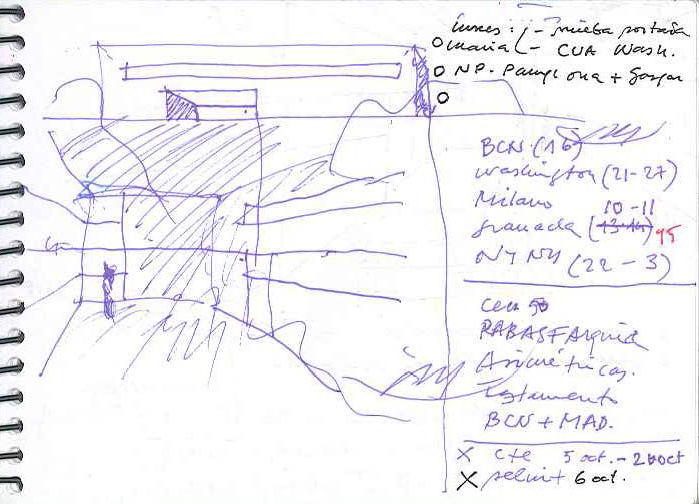 lunes: - prueba portada
maria - CUA Wash.
NP. Pamplona +
BCN (16)
Washington (21-27)
Milano 10-11
Granada (13-14)
NY NY (22 - 3)
Cena
RABASF Arquia
Asimétricas.
Testamento
BCN + MAD.
X cte 5 oct. - 20 oct
X 6 oct.